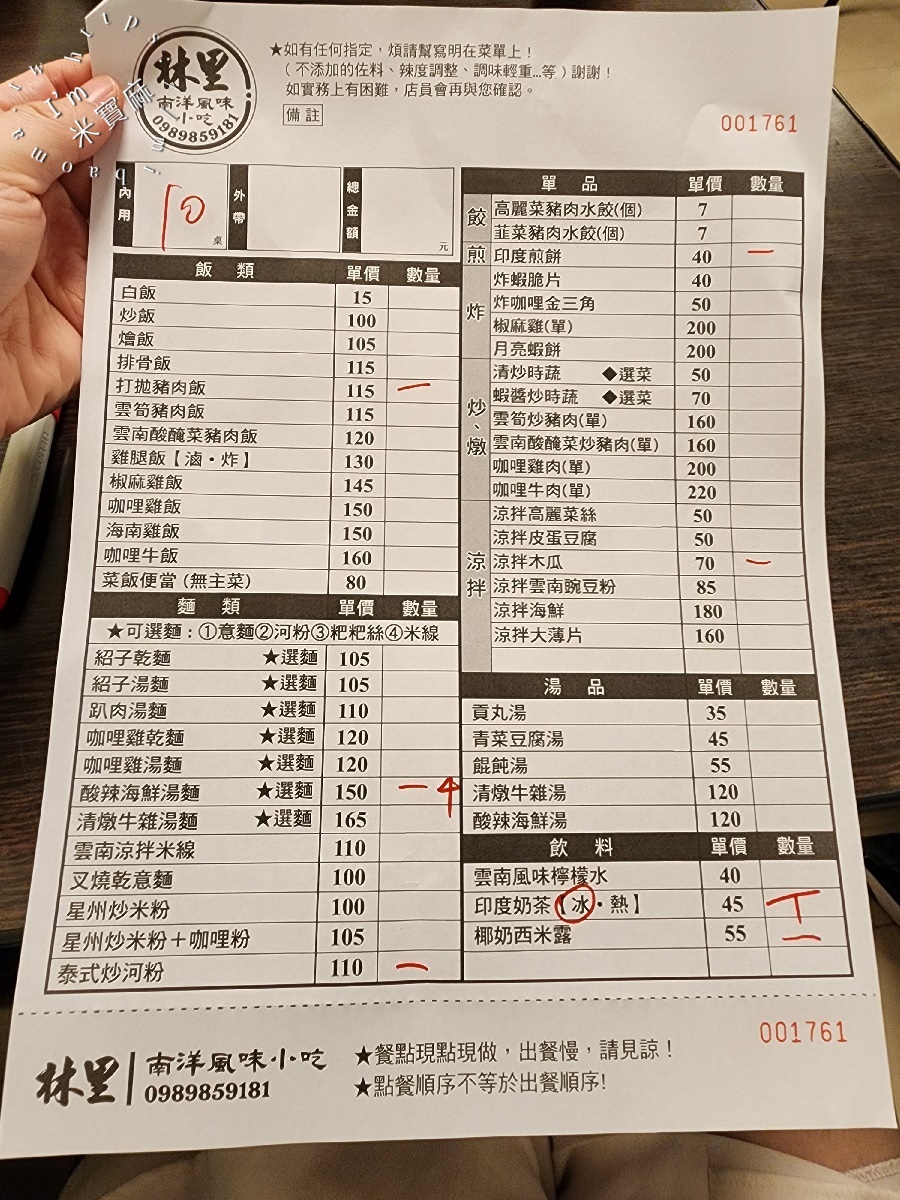 林里
南洋風味
小吃
0989859181
米寶麻
★如有任何指定，煩請幫寫明在菜單上！
（不添加的佐料、辣度調整、調味輕重...等）謝謝！
如實務上有困難，店員會再與您確認。
備註
001761
內用 10 桌 外帶 總金額 元
飯 類 單價 數量
白飯 15
炒飯 100
燴飯 105
排骨飯 115
打拋豬肉飯 115 一
雲筍豬肉飯 115
雲南酸醃菜豬肉飯 120
雞腿飯【滷・炸】 130
椒麻雞飯 145
咖哩雞飯 150
海南雞飯 150
咖哩牛飯 160
菜飯便當 (無主菜) 80
麵 類 單價 數量
★可選麵：①意麵②河粉③粑粑絲④米線
紹子乾麵 ★選麵 105
紹子湯麵 ★選麵 105
趴肉湯麵 ★選麵 110
咖哩雞乾麵 ★選麵 120
咖哩雞湯麵 ★選麵 120
酸辣海鮮湯麵 ★選麵 150 一 4
清燉牛雜湯麵 ★選麵 165
雲南涼拌米線 110
叉燒乾意麵 100
星州炒米粉 100
星州炒米粉＋咖哩粉 105
泰式炒河粉 110 一
單 品 單價 數量
餃
高麗菜豬肉水餃(個) 7
韮菜豬肉水餃(個) 7
煎
印度煎餅 40 一
炸
炸蝦脆片 40
炸咖哩金三角 50
椒麻雞(單) 200
月亮蝦餅 200
炒、燉
清炒時蔬 ◆選菜 50
蝦醬炒時蔬 ◆選菜 70
雲筍炒豬肉(單) 160
雲南酸醃菜炒豬肉(單) 160
咖哩雞肉(單) 200
咖哩牛肉(單) 220
涼拌
涼拌高麗菜絲 50
涼拌皮蛋豆腐 50
涼拌木瓜 70 一
涼拌雲南豌豆粉 85
涼拌海鮮 180
涼拌大薄片 160
湯 品 單價 數量
貢丸湯 35
青菜豆腐湯 45
餛飩湯 55
清燉牛雜湯 120
酸辣海鮮湯 120
飲 料 單價 數量
雲南風味檸檬水 40
印度奶茶【冰・熱】 45
椰奶西米露 55
001761
林里 南洋風味小吃
0989859181
★餐點現點現做，出餐慢，請見諒！
★點餐順序不等於出餐順序!